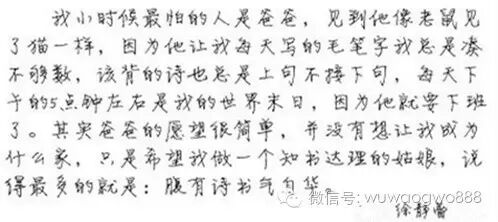 我小时候最怕的人是爸爸，见到他像老鼠见
了猫一样，因为他让我每天写的毛笔字我总是凑
不够数，该背的诗也总是上句不接下句，每天下
午的5点钟左右是我的世界末日，因为他就要下班
了。其实爸爸的愿望很简单，并没有想让我成为
什么家，只是希望我做一个知书达理的姑娘，说
得最多的就是：腹有诗书气自华。
微信号：wuwgogwo888
徐静蕾